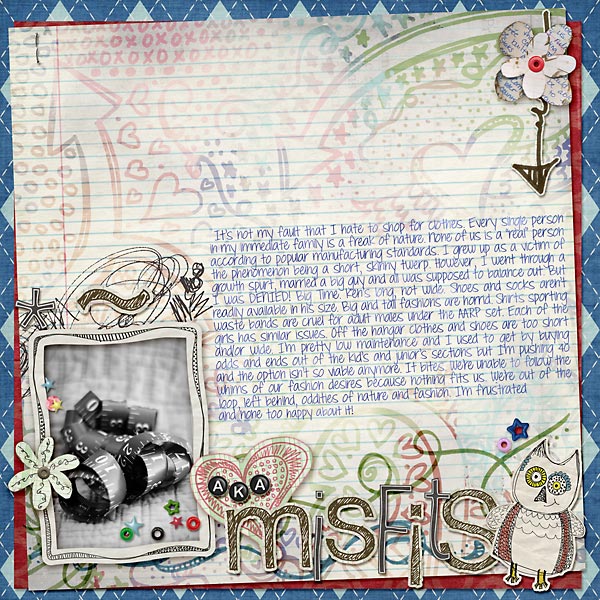 It's not my fault that I hate to shop for clothes. Every single person
in my immediate family is a freak of nature. None of us is a "real" person
according to popular manufacturing standards. I grew up as a victim of
the phenomenon being a short, skinny twerp. However, I went through a
growth spurt, married a big guy and all was supposed to balance out. But
I was DENIED! Big Time. Ken's long, not wide. Shoes and socks aren't
readily available in his size. Big and tall fashions are horrid. Shirts sporting
waste bands are cruel for adult males under the AARP set. Each of the
girls has similar issues. Off the hangar clothes and shoes are too short
and/or wide. I'm pretty low maintenance and I used to get by buying
odds and ends out of the kid's and junior's sections but I'm pushing 40
and the option isn't so viable anymore. It bites. We're unable to follow the
whims of our fashion desires because nothing fits us. We're out of the
loop, left behind, oddities of nature and fashion. I'm frustrated
and none too happy about it!
AKA
misfits